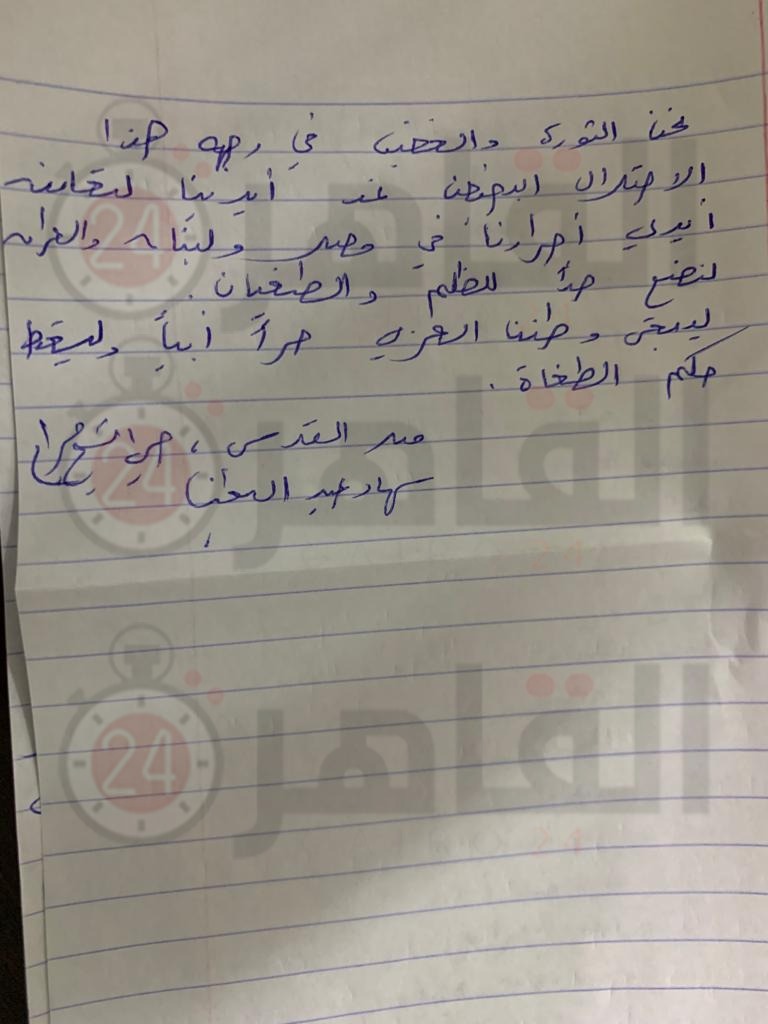 نحن الثورة والغضب في وجه هذا
الاحتلال البغيض نمد أيدينا لتعانق
أيدي أحرارنا في مصر ولبنان والعراق
لنضع حداً للظلم والطغيان .
ليبقى وطننا العزيز حراً أبياً وليسقط
حكم الطغاة .
من القدس ، حي الشيخ جراح
سهاد عبد اللطيف
القاهرة 24
القاهرة 24
القاهرة 24